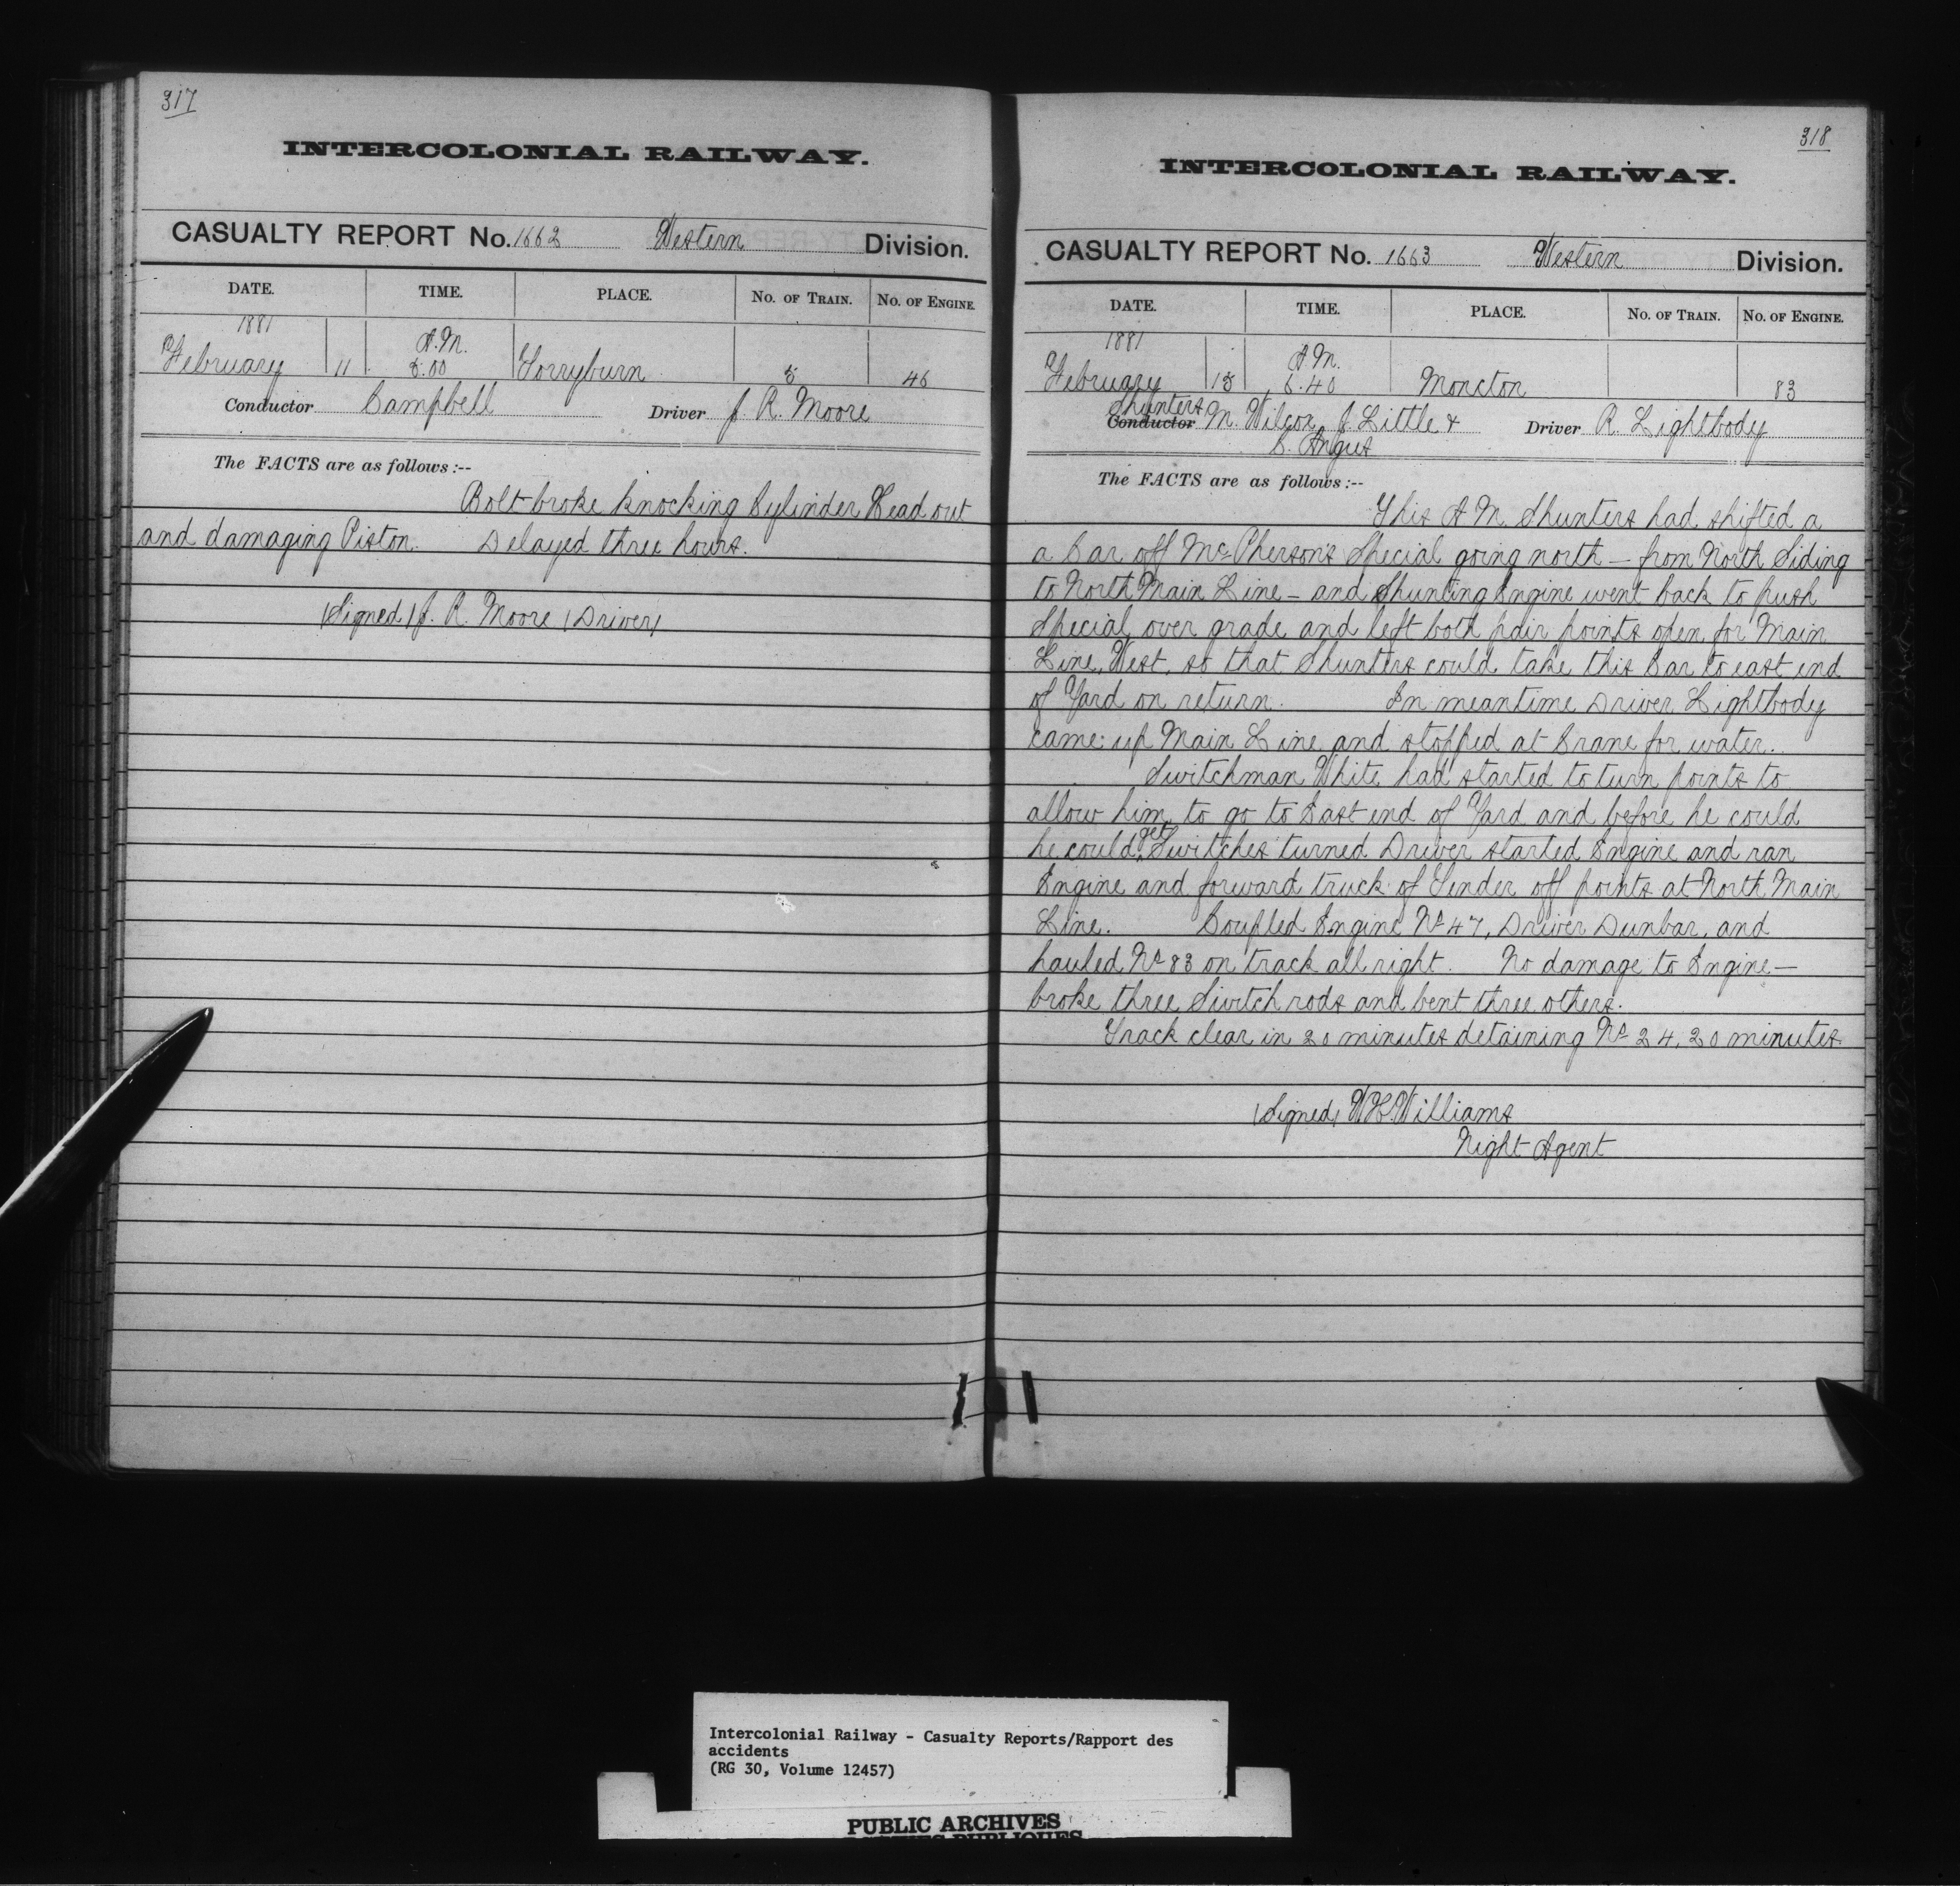 317
INTERCOLONIAL RAILWAY.
CASUALTY REPORT No. 1662 Western Division.
DATE. TIME. PLACE. No. of Train. No. of Engine.
1881 A.M.
February 11 5.00 Torryburn 5 46
Conductor Campbell Driver J. R. Moore
The FACTS are as follows :--
Bolt broke knocking Cylinder Head out
and damaging Piston. Delayed three hours.
(Signed) J. R. Moore (Driver)
318
INTERCOLONIAL RAILWAY.
CASUALTY REPORT No. 1663 Western Division.
DATE. TIME. PLACE. No. of Train. No. of Engine.
1881 A.M.
February 15 5.40 Moncton 83
Shunters
Conductor M. Wilcox, J. Little & Driver R. Lightbody
C. Angus
The FACTS are as follows :--
This A M Shunters had shifted a
a Car off McPherson's Special going north – from North Siding
to North Main Line – and Shunting Engine went back to push
Special over grade and left both pair points open for Main
Line West, so that Shunters could take this Car to east end
of Yard on return. In meantime Driver Lightbody
came up Main Line and stopped at Crane for water.
Switchman White had started to turn points to
allow him to go to East end of Yard and before he could
he could get Switches turned Driver started Engine and ran
Engine and forward truck of Tender off points at North Main
Line. Coupled Engine No 47, Driver Dunbar, and
hauled No 83 on track all right. No damage to Engine –
broke three Switch rods and bent three others.
Track clear in 20 minutes detaining No 24, 20 minutes.
(Signed) W. H. Williams
Night Agent
Intercolonial Railway - Casualty Reports/Rapport des
accidents
(RG 30, Volume 12457)
PUBLIC ARCHIVES